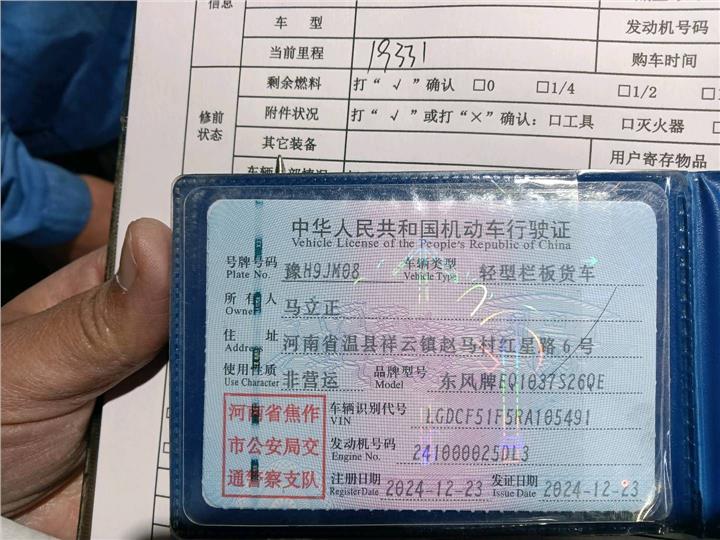 信息
车 型
发动机号码
当前里程
19331
购车时间
修前状态
剩余燃料
打“ √ ”确认 □0 □1/4 □1/2
附件状况
打“ √ ”或打“×”确认：口工具 口灭火器
其它装备
用户寄存物品
中华人民共和国机动车行驶证
Vehicle License of the People's Republic of China
号牌号码 豫H9JM08 车辆类型 轻型栏板货车
Plate No. Vehicle Type
所有人 马立正
Owner
住址 河南省温县祥云镇赵马村红星路6号
Address
使用性质 非营运 品牌型号 东风牌EQ1037S26QE
Use Character Model
河南省焦作
市公安局交
通警察支队
车辆识别代号 LGDCF51F5RA105491
VIN
发动机号码 241000025DL3
Engine No.
注册日期 2024-12-23 发证日期 2024-12-23
Register Date Issue Date